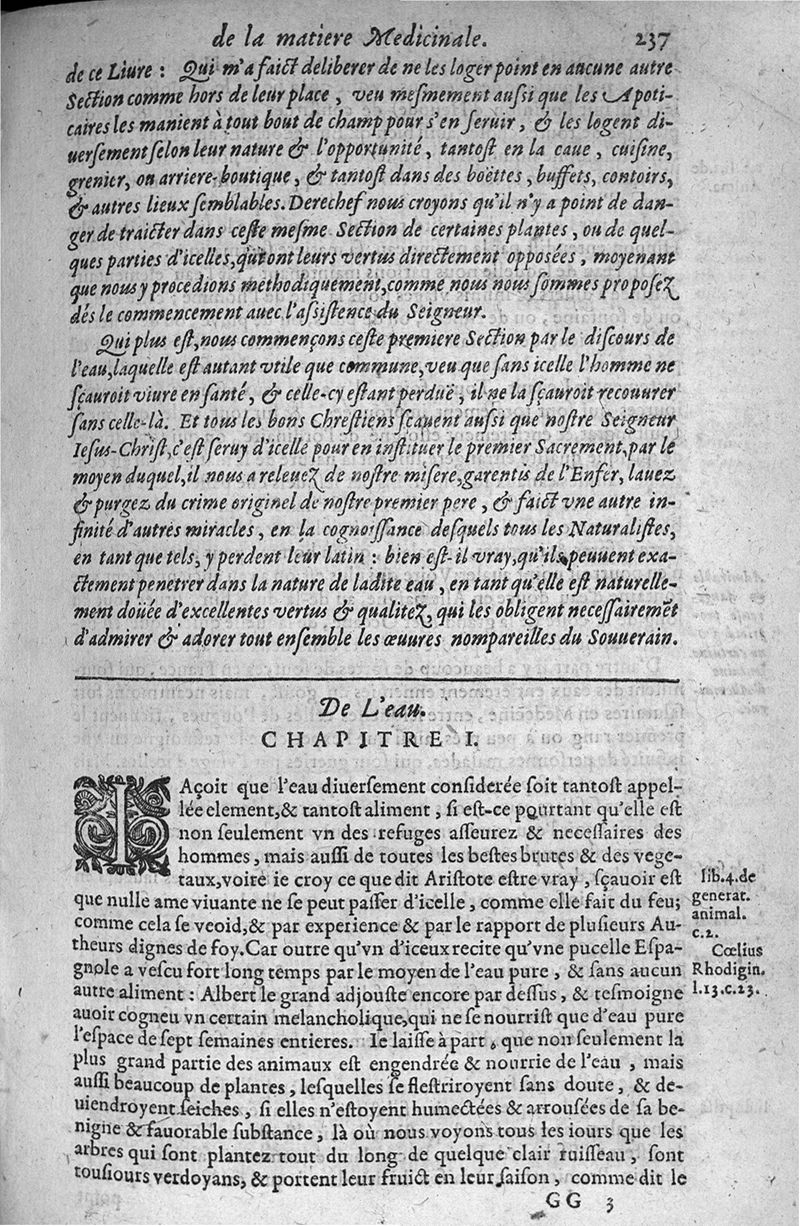 de la matiere Medicinale. 237
de ce Liure : Qui m'a faict deliberer de ne les loger point en aucune autre
Section comme hors de leur place , veu mesmement aussi que les Apoti-
caires les manient à tout bout de champ pour s'en seruir , & les logent di-
uersement selon leur nature & l'opportunité , tantost en la caue , cuisine,
grenier, ou arriere-boutique , & tantost dans des boëttes , buffets, contoirs,
& autres lieux semblables. Derechef nous croyons qu'il n'y a point de dan-
ger de traicter dans ceste mesme Section de certaines plantes , ou de quel-
ques parties d'icelles, qui ont leurs vertus directement opposées , moyenant
que nous y procedions methodiquement, comme nous nous sommes proposez
dés le commencement auec l'assistence du Seigneur.
Qui plus est, nous commençons ceste premiere Section par le discours de
l'eau, laquelle est autant vtile que commune, veu que sans icelle l'homme ne
sçauroit viure en santé , & celle-cy estant perduë , il ne la sçauroit recouurer
sans celle-là. Et tous les bons Chrestiens sçauent aussi que nostre Seigneur
Iesus-Christ, c'est seruy d'icelle pour en instituer le premier Sacrement, par le
moyen duquel, il nous a releuez de nostre misere, garentis de l'Enfer, lauez
& purgez du crime originel de nostre premier pere , & faict vne autre in-
finité d'autres miracles , en la cognoissance desquels tous les Naturalistes,
en tant que tels, y perdent leur latin : bien est-il vray, qu'ils peuuent exa-
ctement penetrer dans la nature de ladite eau , en tant qu'elle est naturelle-
ment doüée d'excellentes vertus & qualitez, qui les obligent necessairemẽt
d'admirer & adorer tout ensemble les œuures nompareilles du Souuerain.
De L'eau.
CHAPITRE I.
IAçoit que l'eau diuersement considerée soit tantost appel-
lée element, & tantost aliment , si est-ce pourtant qu'elle est
non seulement vn des refuges asseurez & necessaires des
hommes , mais aussi de toutes les bestes brutes & des vege-
taux, voire ie croy ce que dit Aristote estre vray , sçauoir est
que nulle ame viuante ne se peut passer d'icelle , comme elle fait du feu;
comme cela se veoid, & par experience & par le rapport de plusieurs Au-
theurs dignes de foy. Car outre qu'vn d'iceux recite qu'vne pucelle Espa-
gnole a vescu fort long temps par le moyen de l'eau pure , & sans aucun
autre aliment : Albert le grand adjouste encore par dessus , & tesmoigne
auoir cogneu vn certain melancholique, qui ne se nourrist que d'eau pure
l'espace de sept semaines entieres. Ie laisse à part , que non seulement la
plus grand partie des animaux est engendrée & nourrie de l'eau , mais
aussi beaucoup de plantes , lesquelles se flestriroyent sans doute , & de-
uiendroyent seiches , si elles n'estoyent humectées & arrousées de sa be-
nigne & fauorable substance , là où nous voyons tous les iours que les
arbres qui sont plantez tout du long de quelque clair ruisseau , sont
tousiours verdoyans, & portent leur fruict en leur saison , comme dit le
GG 3
lib. 4. de
generat.
animal.
c. 2.
Cœlius
Rhodigin.
l. 13. c. 23.